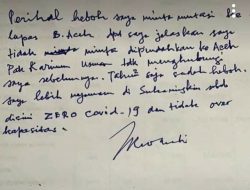 Perihal heboh saya minta mutasi ke
Lapas B. Aceh. Dpt saya jelaskan saya
tidak minta dipindahkan ke Aceh
Pak Karimun Usman tdk menghubungi
saya sebelumnya. Tahu2 saja sudah heboh.
Saya lebih nyaman di Sukamiskin sbb
disini ZERO Covid-19 dan tidak over
kapasitas.